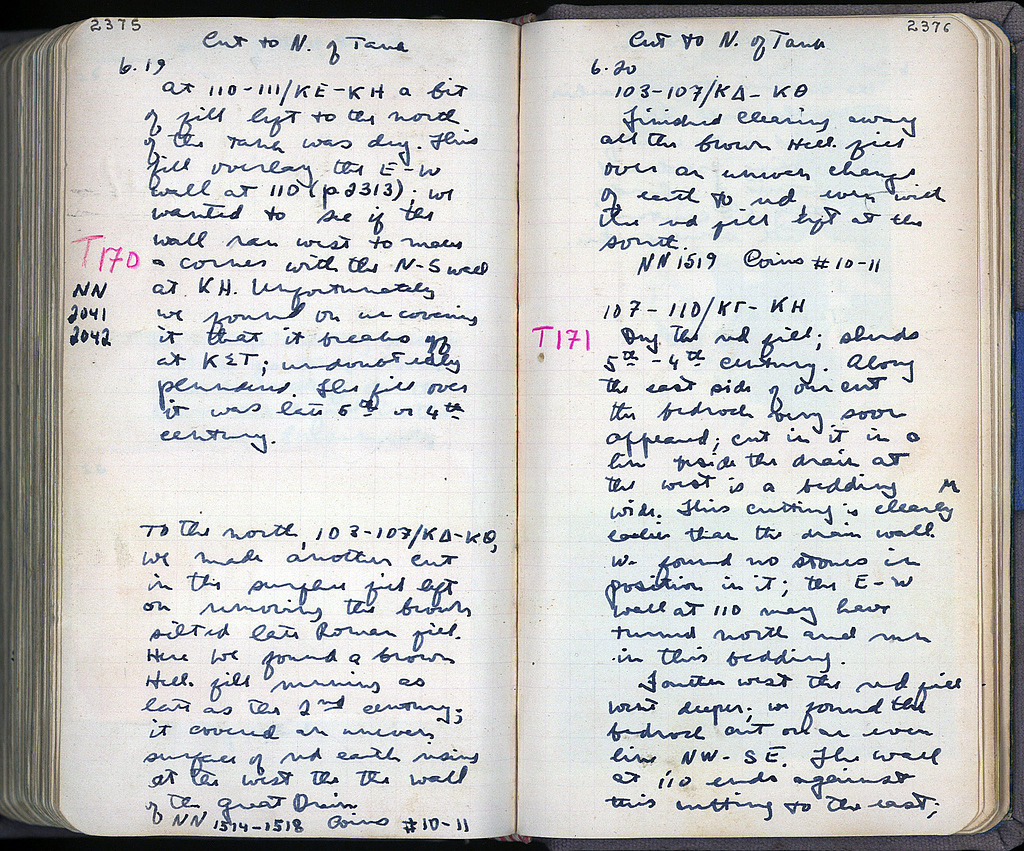 2375
Cut to N. of Tank
6.19
At 110-111/ΚΕ-ΚΗ a bit
of fill left to the north
of the Tank was dug. This
fill overlay the E-W
wall at 110 (p 2313); we
wanted to see if the
wall ran west to make
T170
a corner with the N-S wall
NN
at ΚΗ. Unfortunately
2041
we found on uncovering
2042
it that it breaks off
at ΚΣΤ; undoubtedly
plundered. The fill over
it was late 5th or 4th
century.
To the north, 103-107/ΚΔ-ΚΘ,
we made another cut
in the surface fill left
on removing the brown
silted late Roman fill.
Here we found a brown
Hell. fill running as
late as the 2nd century;
it covered an uneven
surface of red earth rising
at the west the the wall
of the great Drain
NN 1514-1518 Coins #10-11
2376
Cut to N. of Tank
6.20
103-107/ΚΔ-ΚΘ
Finished clearing away
all the brown Hell. fill
over an uneven change
of earth to red, even with
the red fill left at the
south.
NN 1519 Coins #10-11
107-110/ΚΓ-ΚΗ
T171
Dug the red fill; sherds
5th-4th century. Along
the east side of our cut
the bedrock very soon
appeared; cut in it in a
line beside the drain at
the west is a bedding M
wide. This cutting is clearly
earlier than the drain wall.
We found no stones in
position in it; the E-W
wall at 110 may have
turned north and run
in this bedding.
Further west the red fill
went deeper; we found the
bedrock cut on an even
line NW-SE. The wall
at 110 ends against
this cutting to the east;